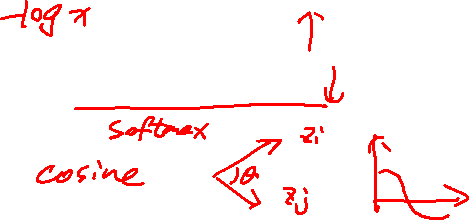 -log x
softmax
zi
cosine
θ
zj